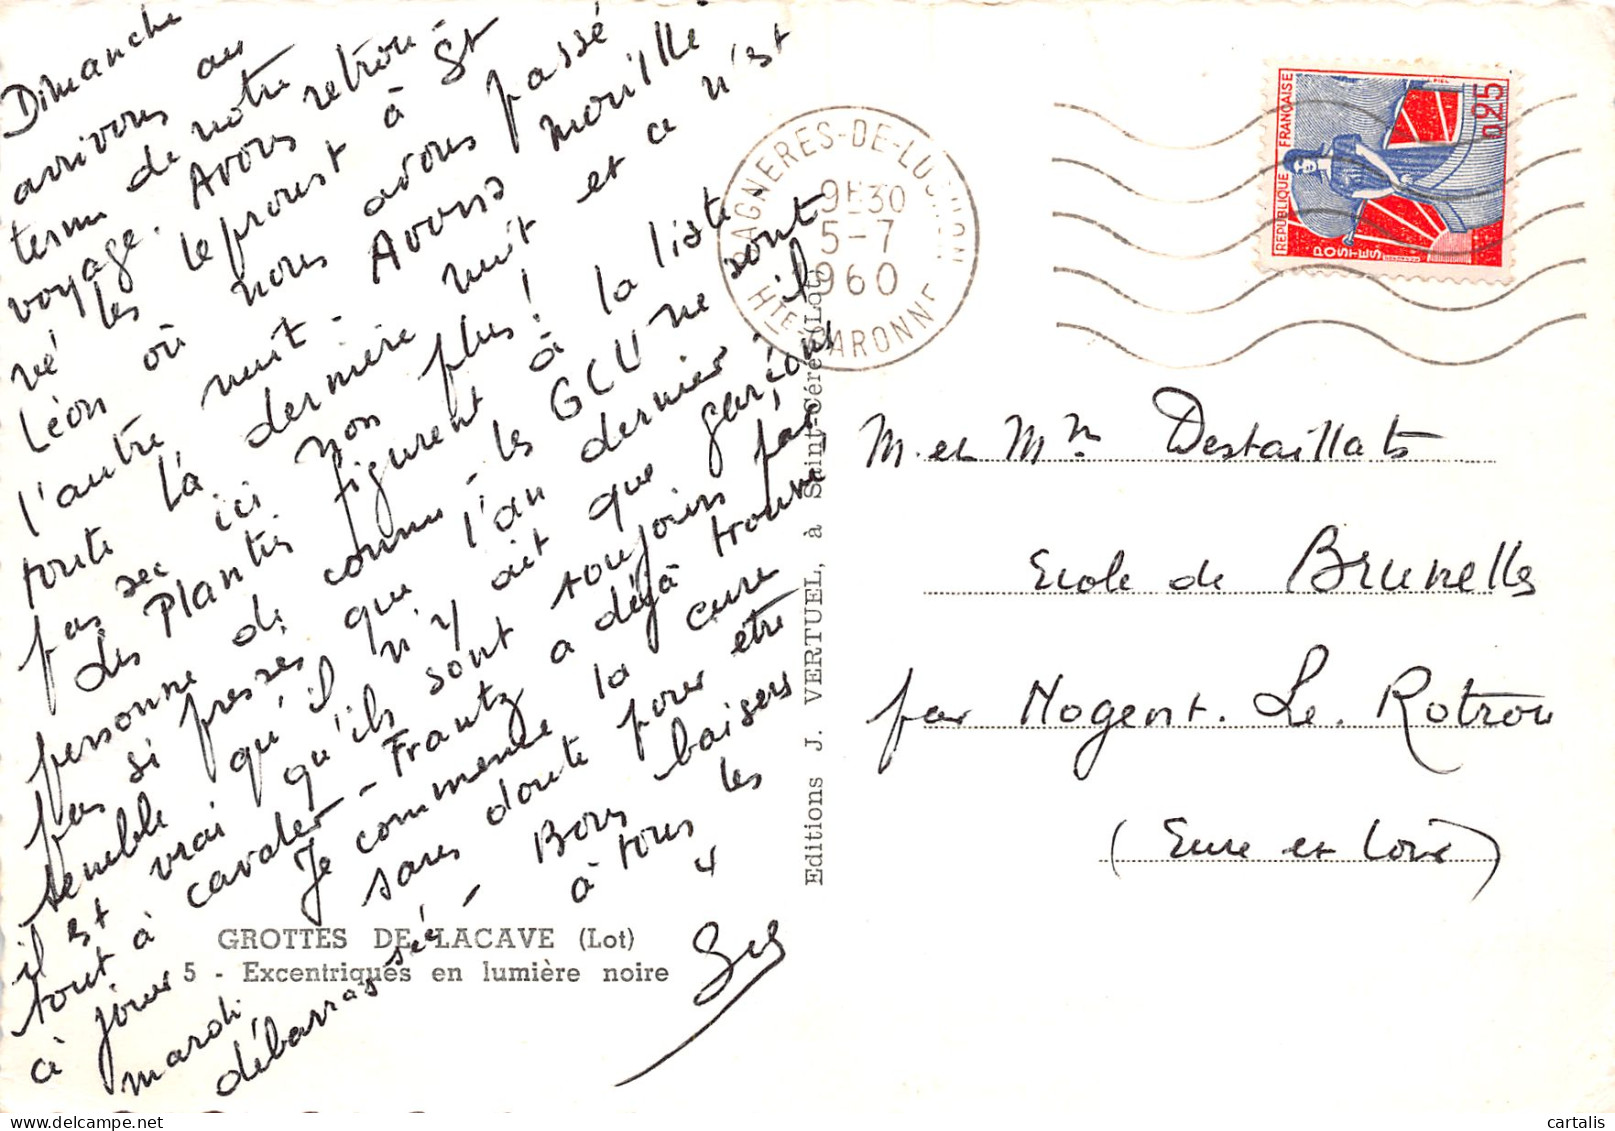 Dimanche
arrivons au
terme de notre
voyage. Avons retrou-
vé les leproust à St
Léon où nous avons passé
l'autre nuit. Avons mouillé
toute la dernière nuit et ce n'est
pas sec ici non plus !
Les Planties figurent à la liste
personne de connu - les GCU ne sont
pas si pressés que l'an dernier
semble qu'il n'y ait que garçons
il est vrai qu'ils sont toujours pas
tout à cavaler - Frantz a déjà trouvé
à jouer Je commence la cure
mardi, sans doute pour être
débarrassée - Bons baisers
à tous les 4
BAGNERES-DE-LUCHON
9H30
5-7
1960
HTE-GARONNE
REPUBLIQUE FRANÇAISE
0,25
POSTES
M. et Mme Destaillats
Ecole de Brunelles
par Nogent. Le. Rotrou
(Eure et Loir)
Editions J. VERTUEL, à Saint-Céré (Lot)
GROTTES DE LACAVE (Lot)
5 - Excentriques en lumière noire
cartalis